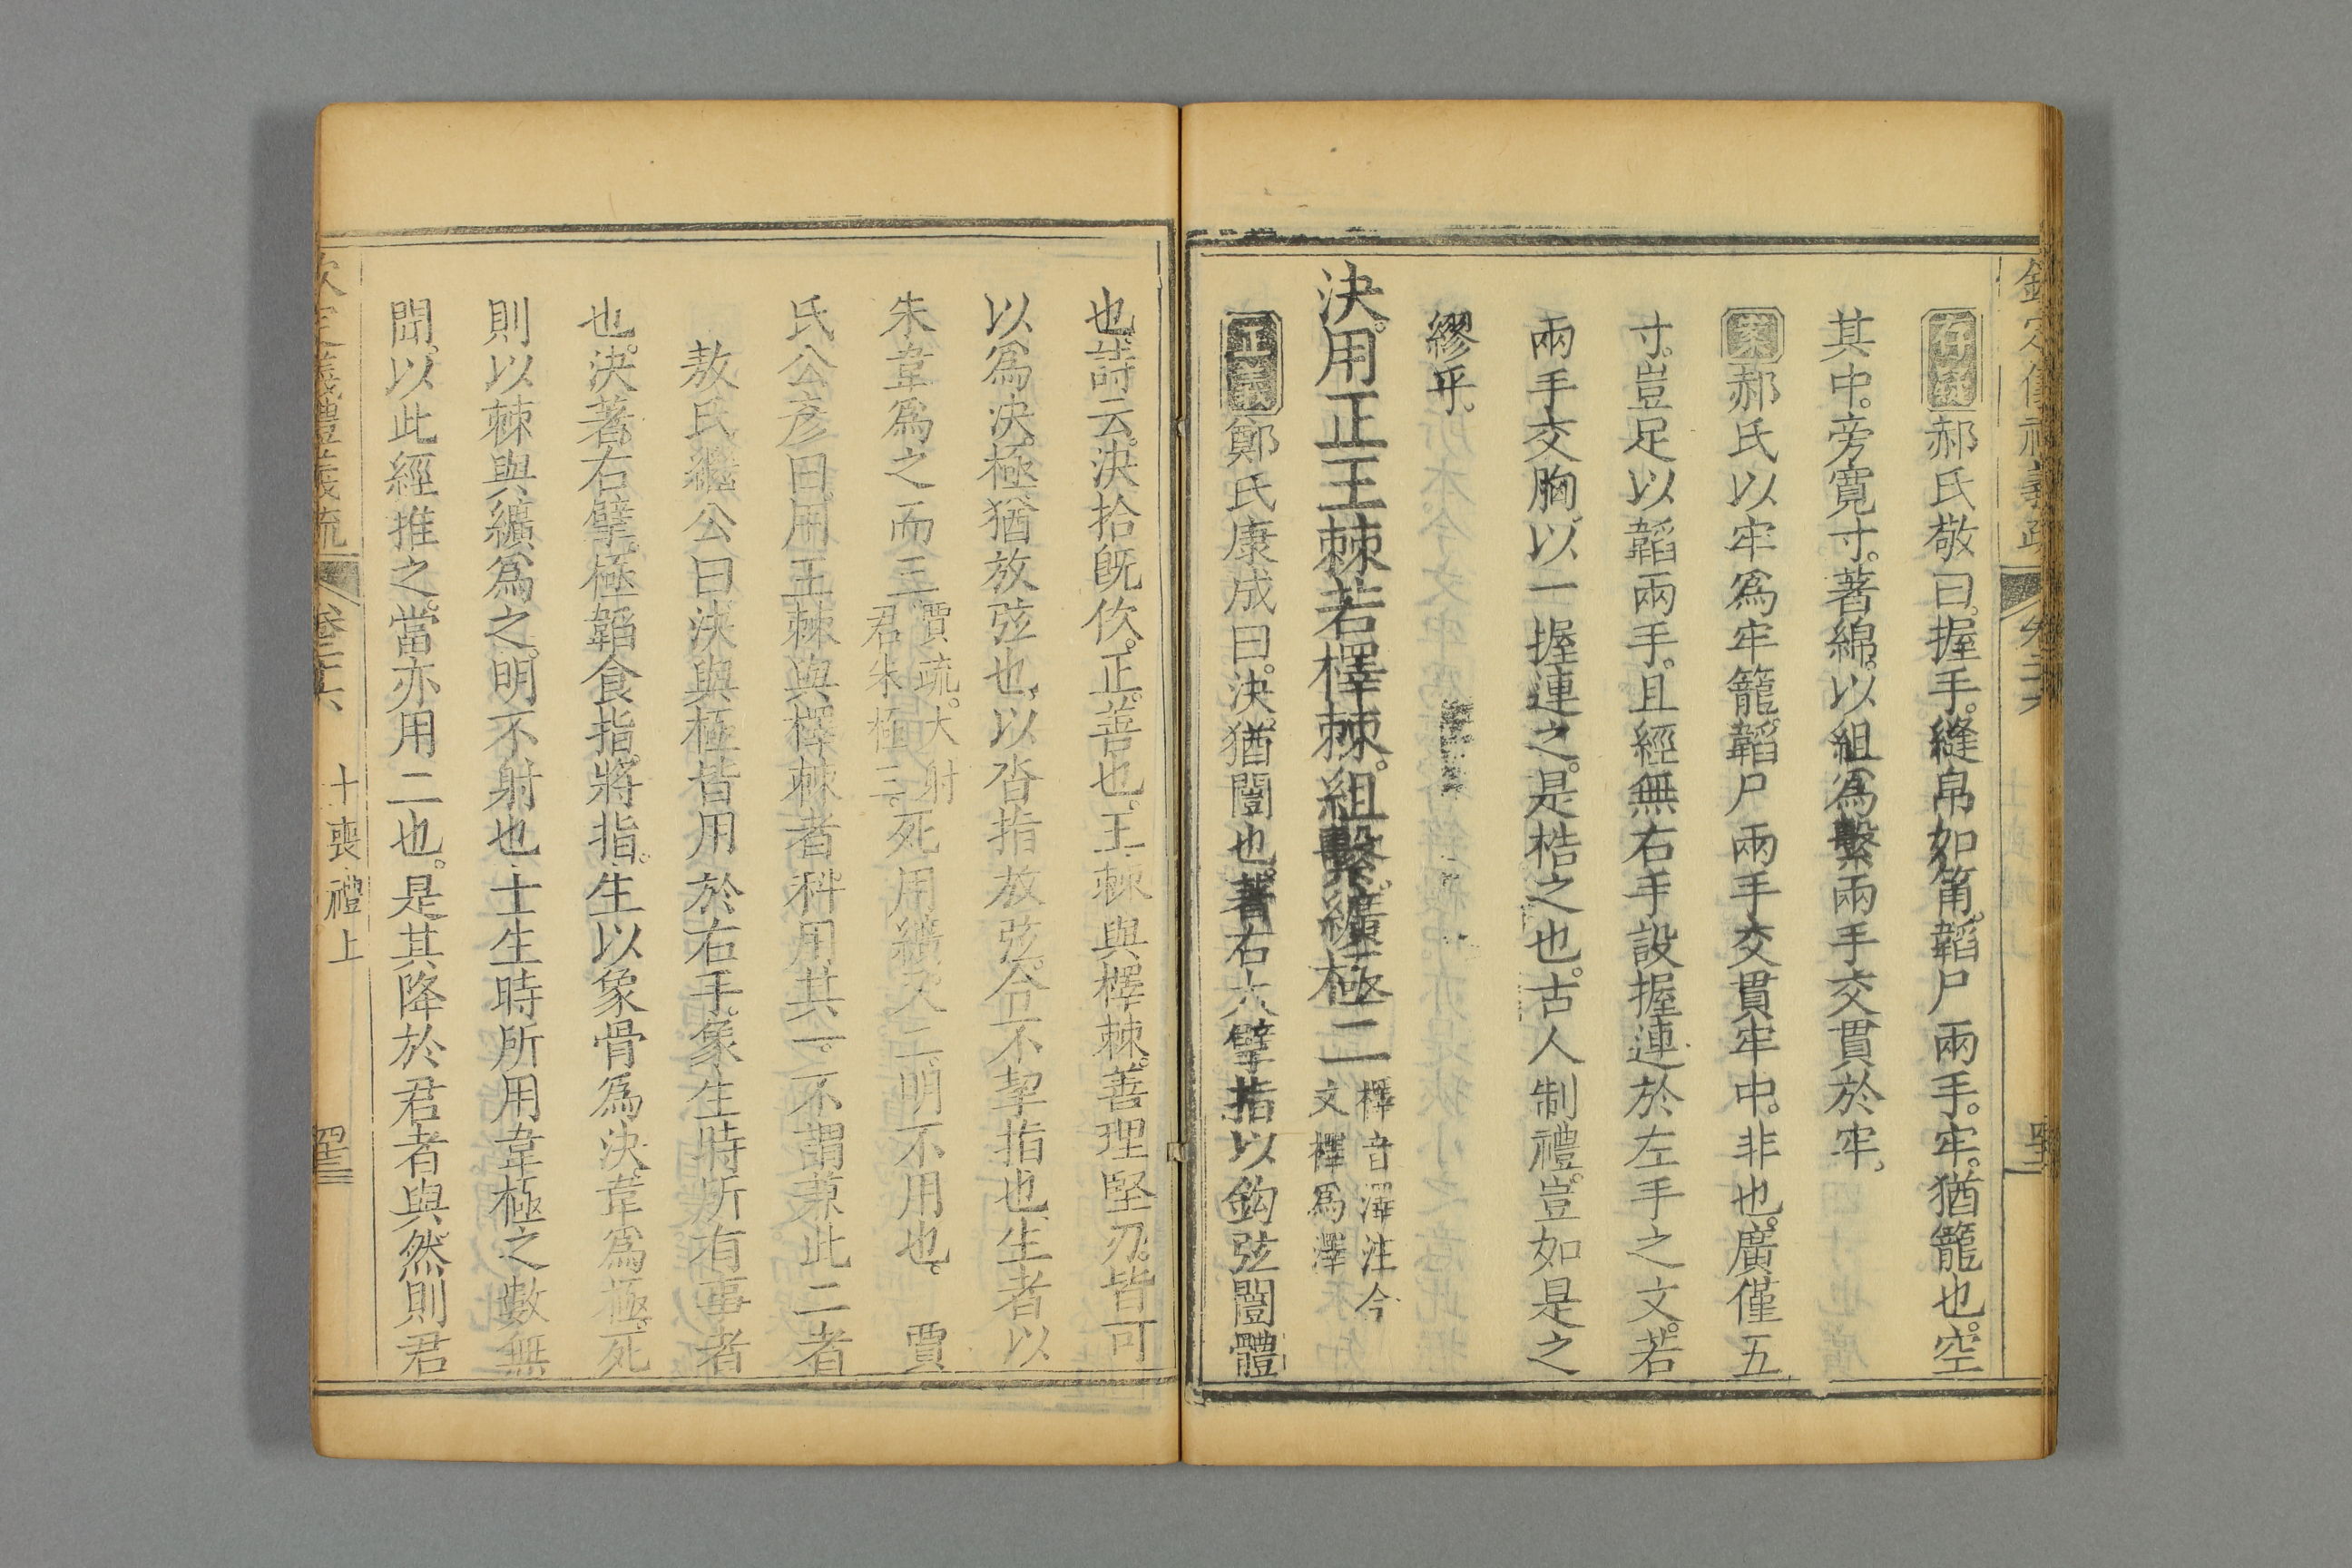 欽定儀禮義疏 卷二十六
存異郝氏敬曰。握手。縫帛如筩。韜尸兩手。牢。猶籠也。空
其中。旁寛寸。著綿。以組爲繫兩手交貫於牢。
案郝氏以牢爲牢籠。韜尸兩手交貫牢中。非也。廣僅五
寸。豈足以韜兩手。且經無右手設握連於左手之文。若
兩手交胸。以一握連之。是梏之也。古人制禮。豈如是之
繆乎。
決。用正王棘若檡棘。組繫。纊極二檡音澤注今
文檡爲澤
正義鄭氏康成曰。決。猶闓也。著右大擘指以鈎弦闓體
也。詩云。決拾旣佽。正。善也。王棘與檡棘。善理堅刃。皆可
以爲決。極猶放弦也。以沓指放弦。令不挈指也。生者以
朱韋爲之而三。賈疏。大射
君朱極三。死用纊。又二。明不用也。 賈
氏公彥曰。用王棘與檡棘者。科用其一。不謂兼此二者
敖氏繼公曰決與極皆用於右手。象生時所有事者
也。決著右擘。極韜食指。將指。生以象骨爲決。韋爲極。死
則以棘與纊爲之。明不射也。士生時所用韋極之數無
聞。以此經推之。當亦用二也。是其降於君者與。然則君
欽定儀禮義疏 卷二十六 士喪禮上